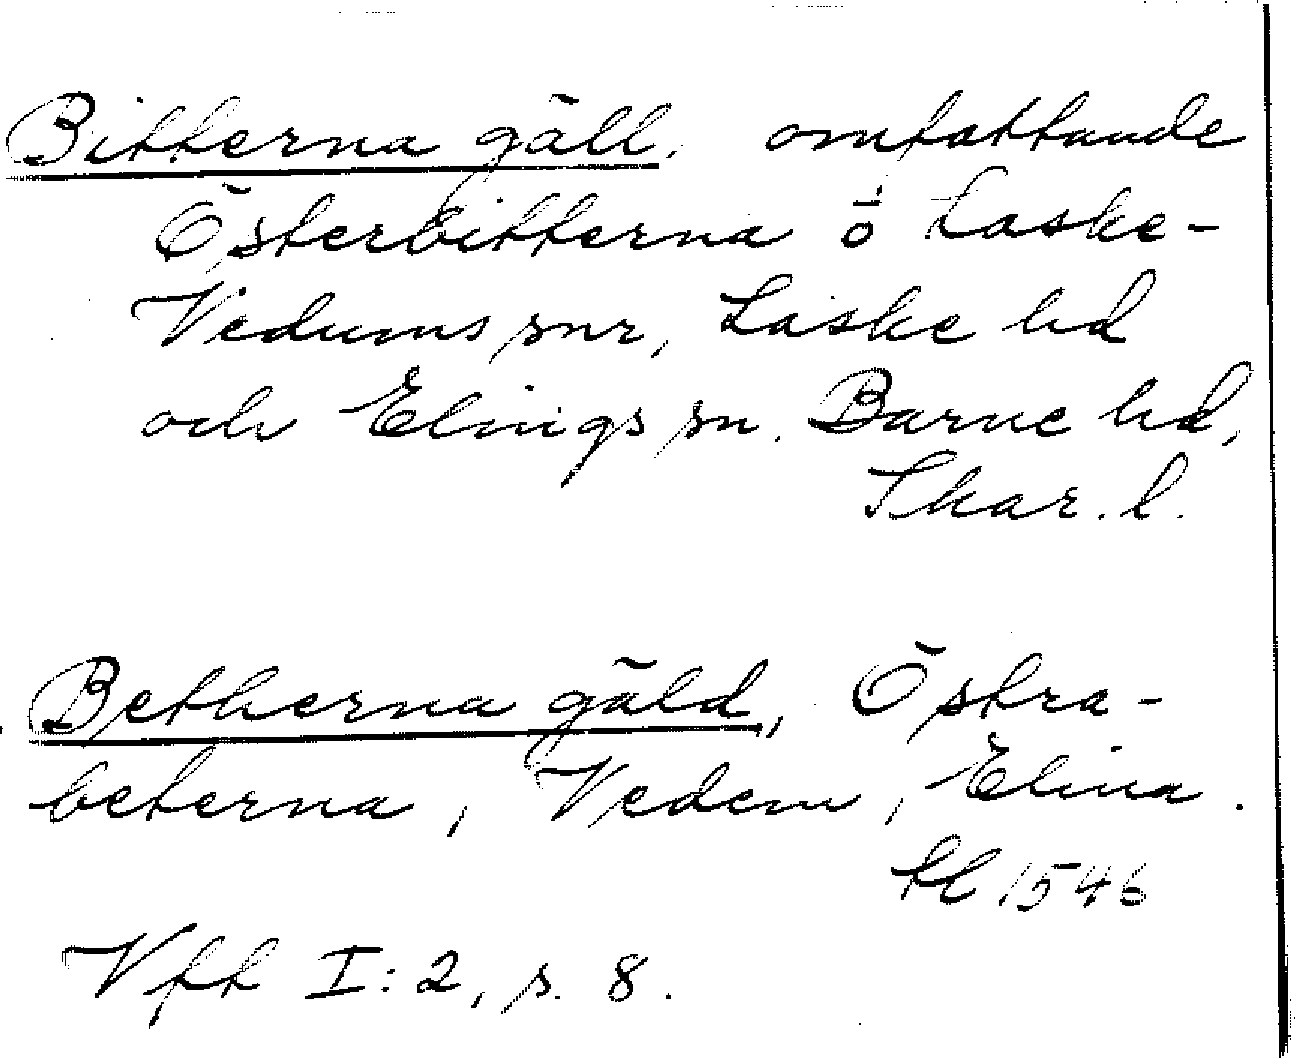 Bitterna gäll, omfattande
Österbitterna o Laske-
Vedums snr, Laske hd
och Elings sn. Barne hd,
Skar. l.
Betherna gäld, Östra-
beterna, Vedem, Elina.
tl 1546
Vft I:2, s. 8.